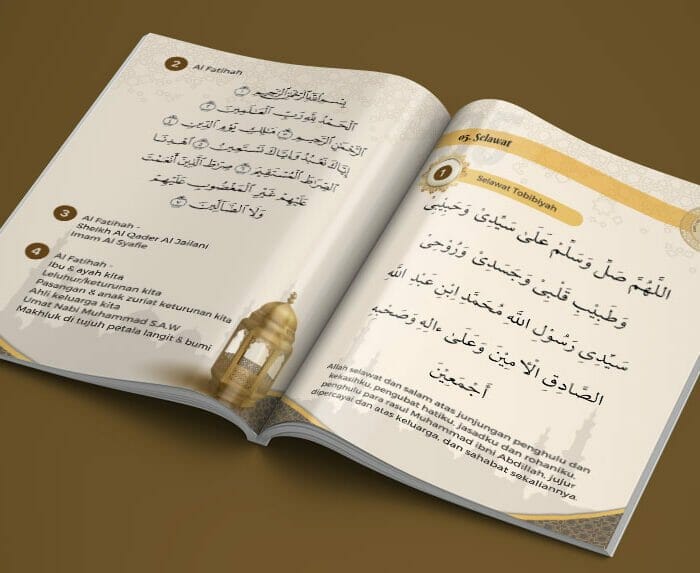 2 Al Fatihah
بِسْمِ اللَّهِ الرَّحْمَٰنِ الرَّحِيمِ ١
الْحَمْدُ لِلَّهِ رَبِّ الْعَالَمِينَ ٢
الرَّحْمَٰنِ الرَّحِيمِ ٣ مَالِكِ يَوْمِ الدِّينِ ٤
إِيَّاكَ نَعْبُدُ وَإِيَّاكَ نَسْتَعِينُ ٥ اهْدِنَا
الصِّرَاطَ الْمُسْتَقِيمَ ٦ صِرَاطَ الَّذِينَ أَنْعَمْتَ
عَلَيْهِمْ غَيْرِ الْمَغْضُوبِ عَلَيْهِمْ
وَلَا الضَّالِّينَ ٧
3 Al Fatihah -
Sheikh Al Qader Al Jailani
Imam Al Syafie
4 Al Fatihah -
Ibu & ayah kita
Leluhur/keturunan kita
Pasangan & anak zuriat keturunan kita
Ahli keluarga kita
Umat Nabi Muhammad S.A.W
Makhluk di tujuh petala langit & bumi
05. Selawat
1 Selawat Tobibiyah
اَللّٰهُمَّ صَلِّ وَسَلِّمْ عَلَىٰ سَيِّدِىْ وَحَبِيْبِىْ
وَطَبِيْبِ قَلْبِىْ وَجَسَدِىْ وَرُوْحِىْ
سَيِّدِىْ رَسُوْلِ اللَّهِ مُحَمَّدِ اِبْنِ عَبْدِ اللَّهِ
الصَّادِقِ الْأَمِيْنَ وَعَلَىٰ ءَالِهِ وَصَحْبِهِ
أَجْمَعِيْنَ
Allah selawat dan salam atas junjungan penghulu dan
kekasihku, pengubat hatiku, jasadku dan rohaniku,
penghulu para rasul Muhammad ibni Abdillah, jujur
dipercayai dan atas keluarga, dan sahabat sekaliannya.